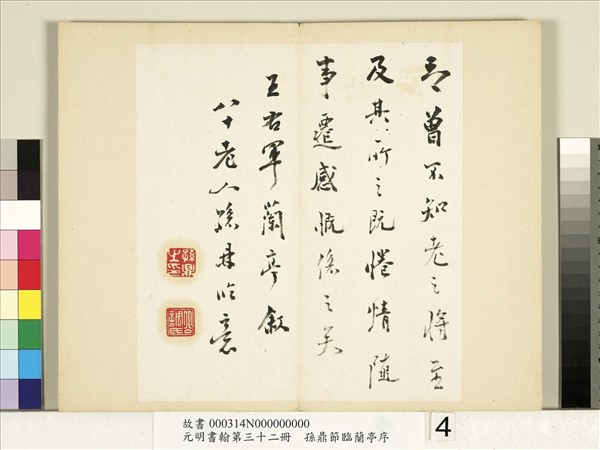 足曾不知老之將至
及其所之既惓情隨
事遷感慨係之矣
王右軍蘭亭敘
八十老人孫鼎臨意
故書 000314N000000000
元明書翰第三十二冊 孫鼎節臨蘭亭序
4